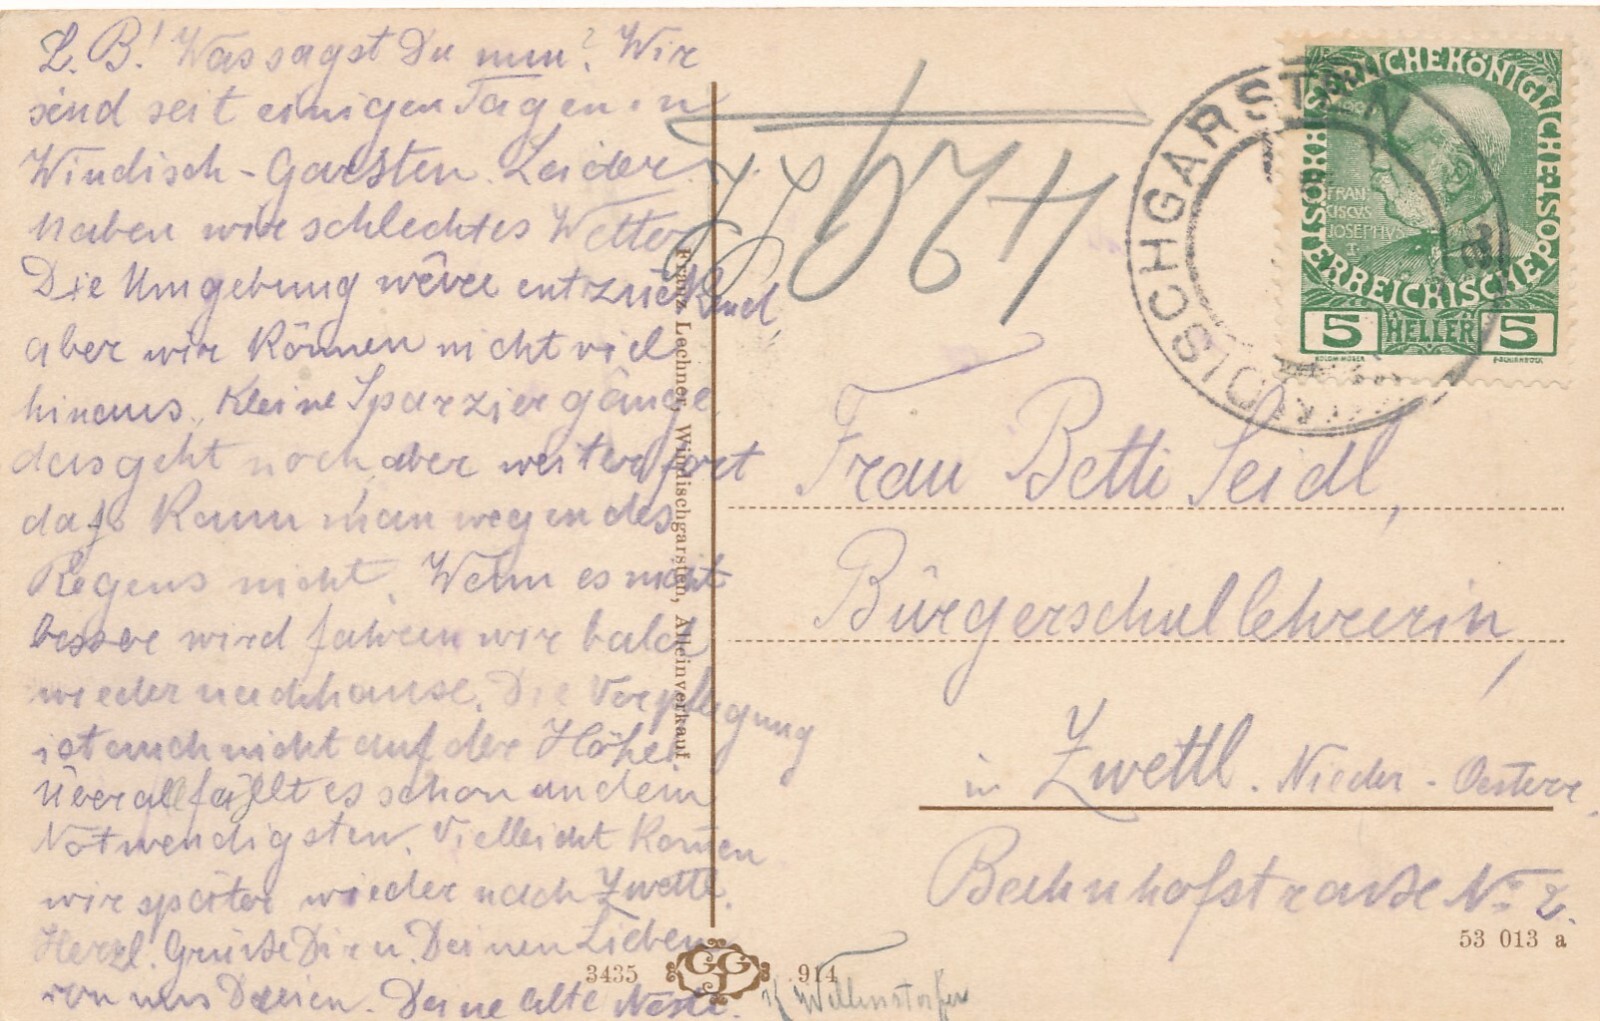 L. B! Was sagst Du nun? Wir
sind seit einigen Tagen in
Windisch-Garsten. Leider
haben wir schlechtes Wetter
Die Umgebung wäre entzückend,
aber wir können nicht viel
hinaus. Kleine Sparziergänge
das geht noch, aber weiter fort
daſs kann man wegen des
Regens nicht. Wenn es nicht
besser wird fahren wir bald
wieder nachhause. Die Verpflegung
ist auch nicht auf der Höhe.
Überall fählt es schon an dem
Notwendigsten. Vielleicht kom̄en
wir später wieder nach Zwettl.
Herzl. Grüße Dir u. Deinen Lieben
von uns Dreien. Deine alte
Franz Lechner, Windischgarsten, Alleinverkauf
3435
GGJ
914
WINDISCHGARSTEN
KAISERLICHE KÖNIGLICHE ÖSTERREICHISCHE POST
FRAN
CISCVS
JOSEPHVS
I.
5 HELLER 5
Frau Betti Seidl,
Bürgerschullehrerin,
in Zwettl. Nieder-Oesterr.
Bahnhofstraße No 2.
53 013 a